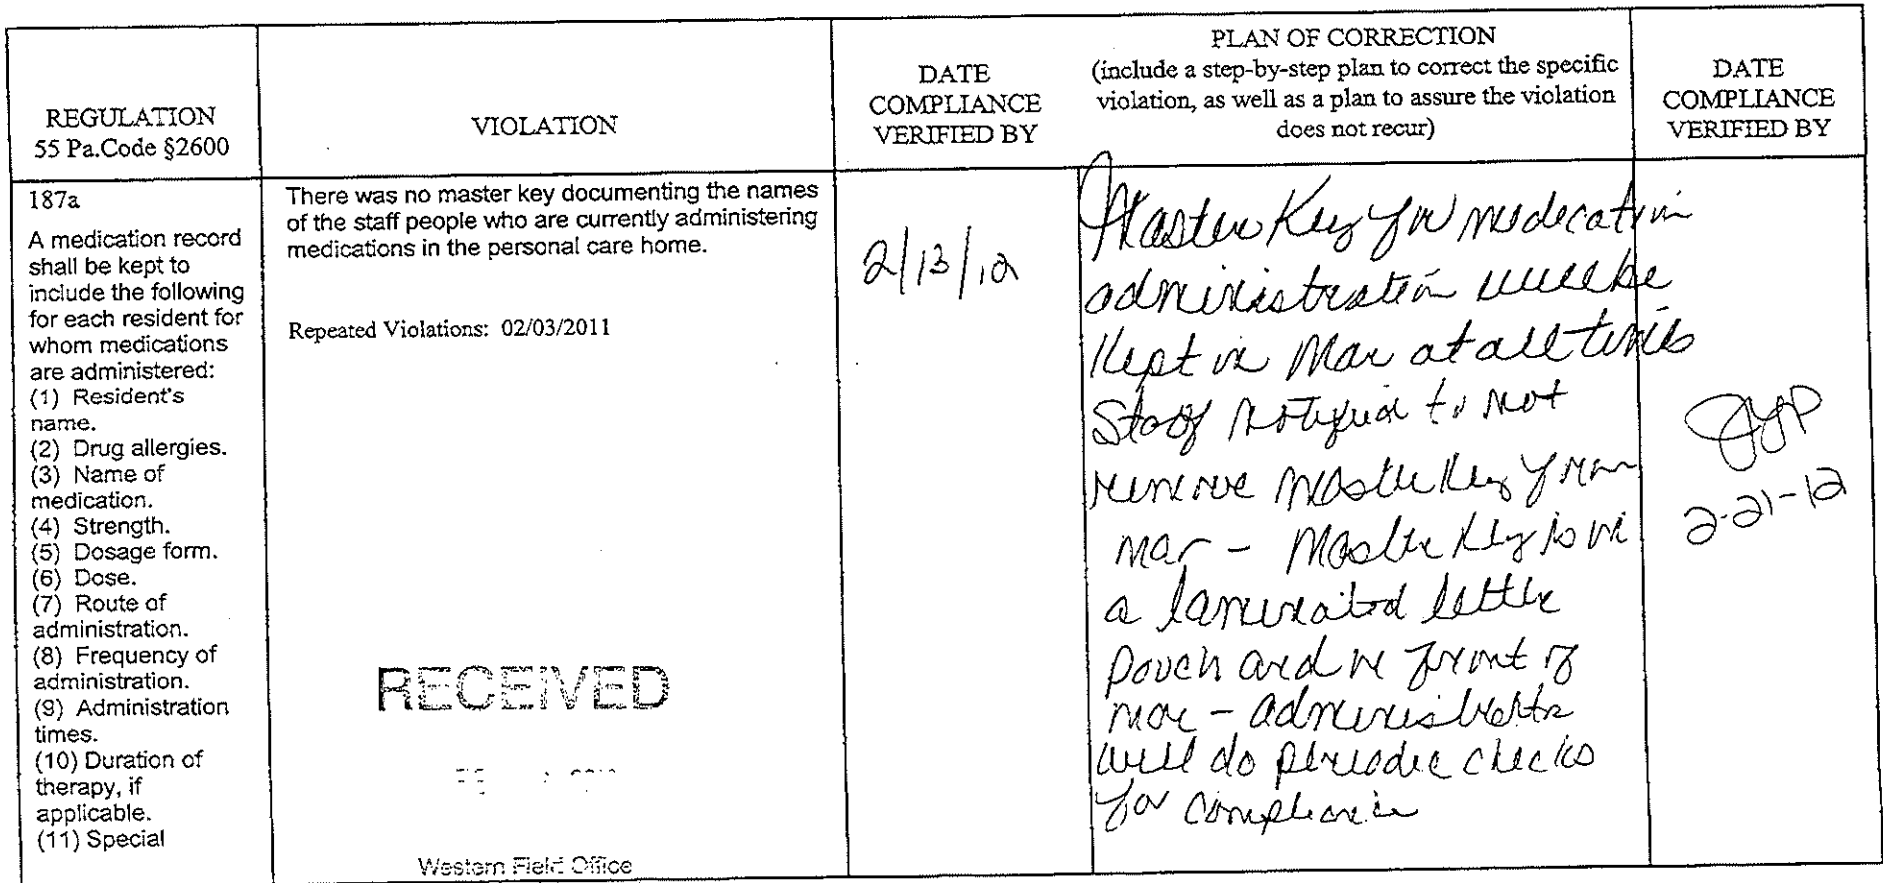 REGULATION
55 Pa.Code §2600
VIOLATION
DATE
COMPLIANCE
VERIFIED BY
PLAN OF CORRECTION
(include a step-by-step plan to correct the specific
violation, as well as a plan to assure the violation
does not recur)
DATE
COMPLIANCE
VERIFIED BY
187a
A medication record
shall be kept to
include the following
for each resident for
whom medications
are administered:
(1) Resident's
name.
(2) Drug allergies.
(3) Name of
medication.
(4) Strength.
(5) Dosage form.
(6) Dose.
(7) Route of
administration.
(8) Frequency of
administration.
(9) Administration
times.
(10) Duration of
therapy, if
applicable.
(11) Special
There was no master key documenting the names
of the staff people who are currently administering
medications in the personal care home.
Repeated Violations: 02/03/2011
RECEIVED
Western Field Office
2/13/12
Master Key for medication
administration will be
Kept in Mar at all times
Staff notified to not
remove Master Key from
mar - Master Key is in
a laminated letter
pouch and in front of
mar - administrator
will do periodic checks
for compliance
2-21-12